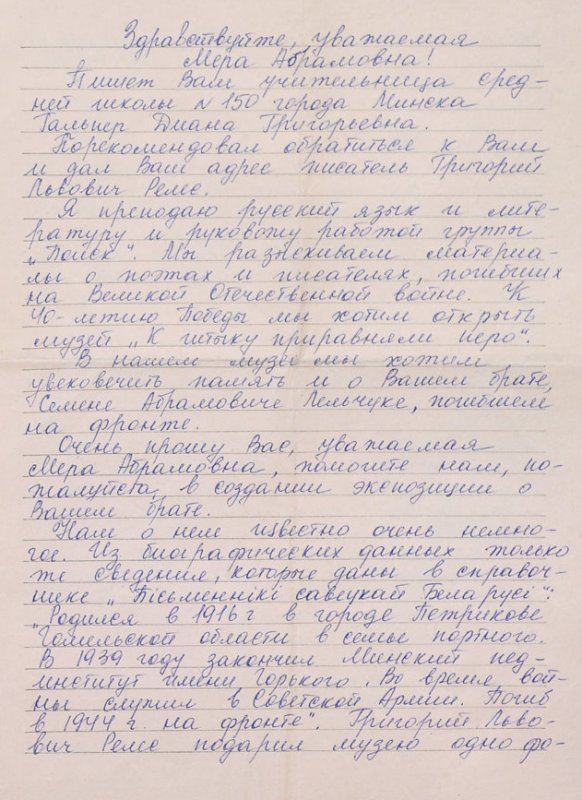 Здравствуйте, уважаемая
Мера Абрамовна!
Пишет Вам учительница сред-
ней школы №150 города Минска
Гальпер Диана Григорьевна.
Порекомендовал обратиться к Вам
и дал Ваш адрес писатель Григорий
Львович Релес.
Я преподаю русский язык и лите-
ратуру и руковожу работой группы
„Поиск“. Мы разыскиваем материа-
лы о поэтах и писателях, погибших
на Великой Отечественной войне. К
40-летию Победы мы хотим открыть
музей „К штыку приравняли перо“.
В нашем музее мы хотим
увековечить память и о Вашем брате,
Семене Абрамовиче Лельчуке, погибшем
на фронте.
Очень прошу Вас, уважаемая
Мера Абрамовна, помогите нам, по-
жалуйста, в создании экспозиции о
Вашем брате.
Нам о нем известно очень немно-
гое. Из биографических данных только
те сведения, которые даны в справоч-
нике „Пісьменнікі савецкай Беларусі“:
„Родился в 1916 г в городе Петрикове
Гомельской области в семье портного.
В 1939 году закончил Минский пед-
институт имени Горького. Во время вой-
ны служил в Советской Армии. Погиб
в 1944 г. на фронте“. Григорий Льво-
вич Релес подарил музею одно фо-